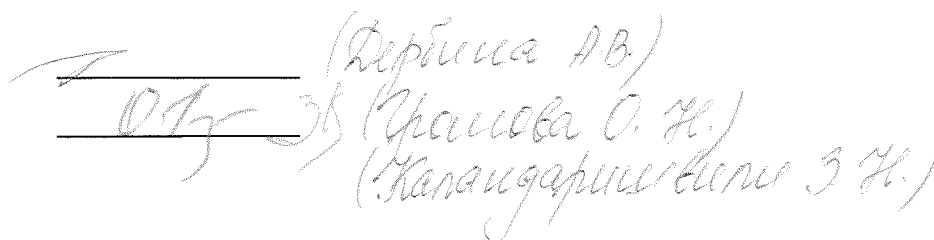 (Дербина А.В.)
(Храмова О. Н.)
(Каландаришвили З Н.)